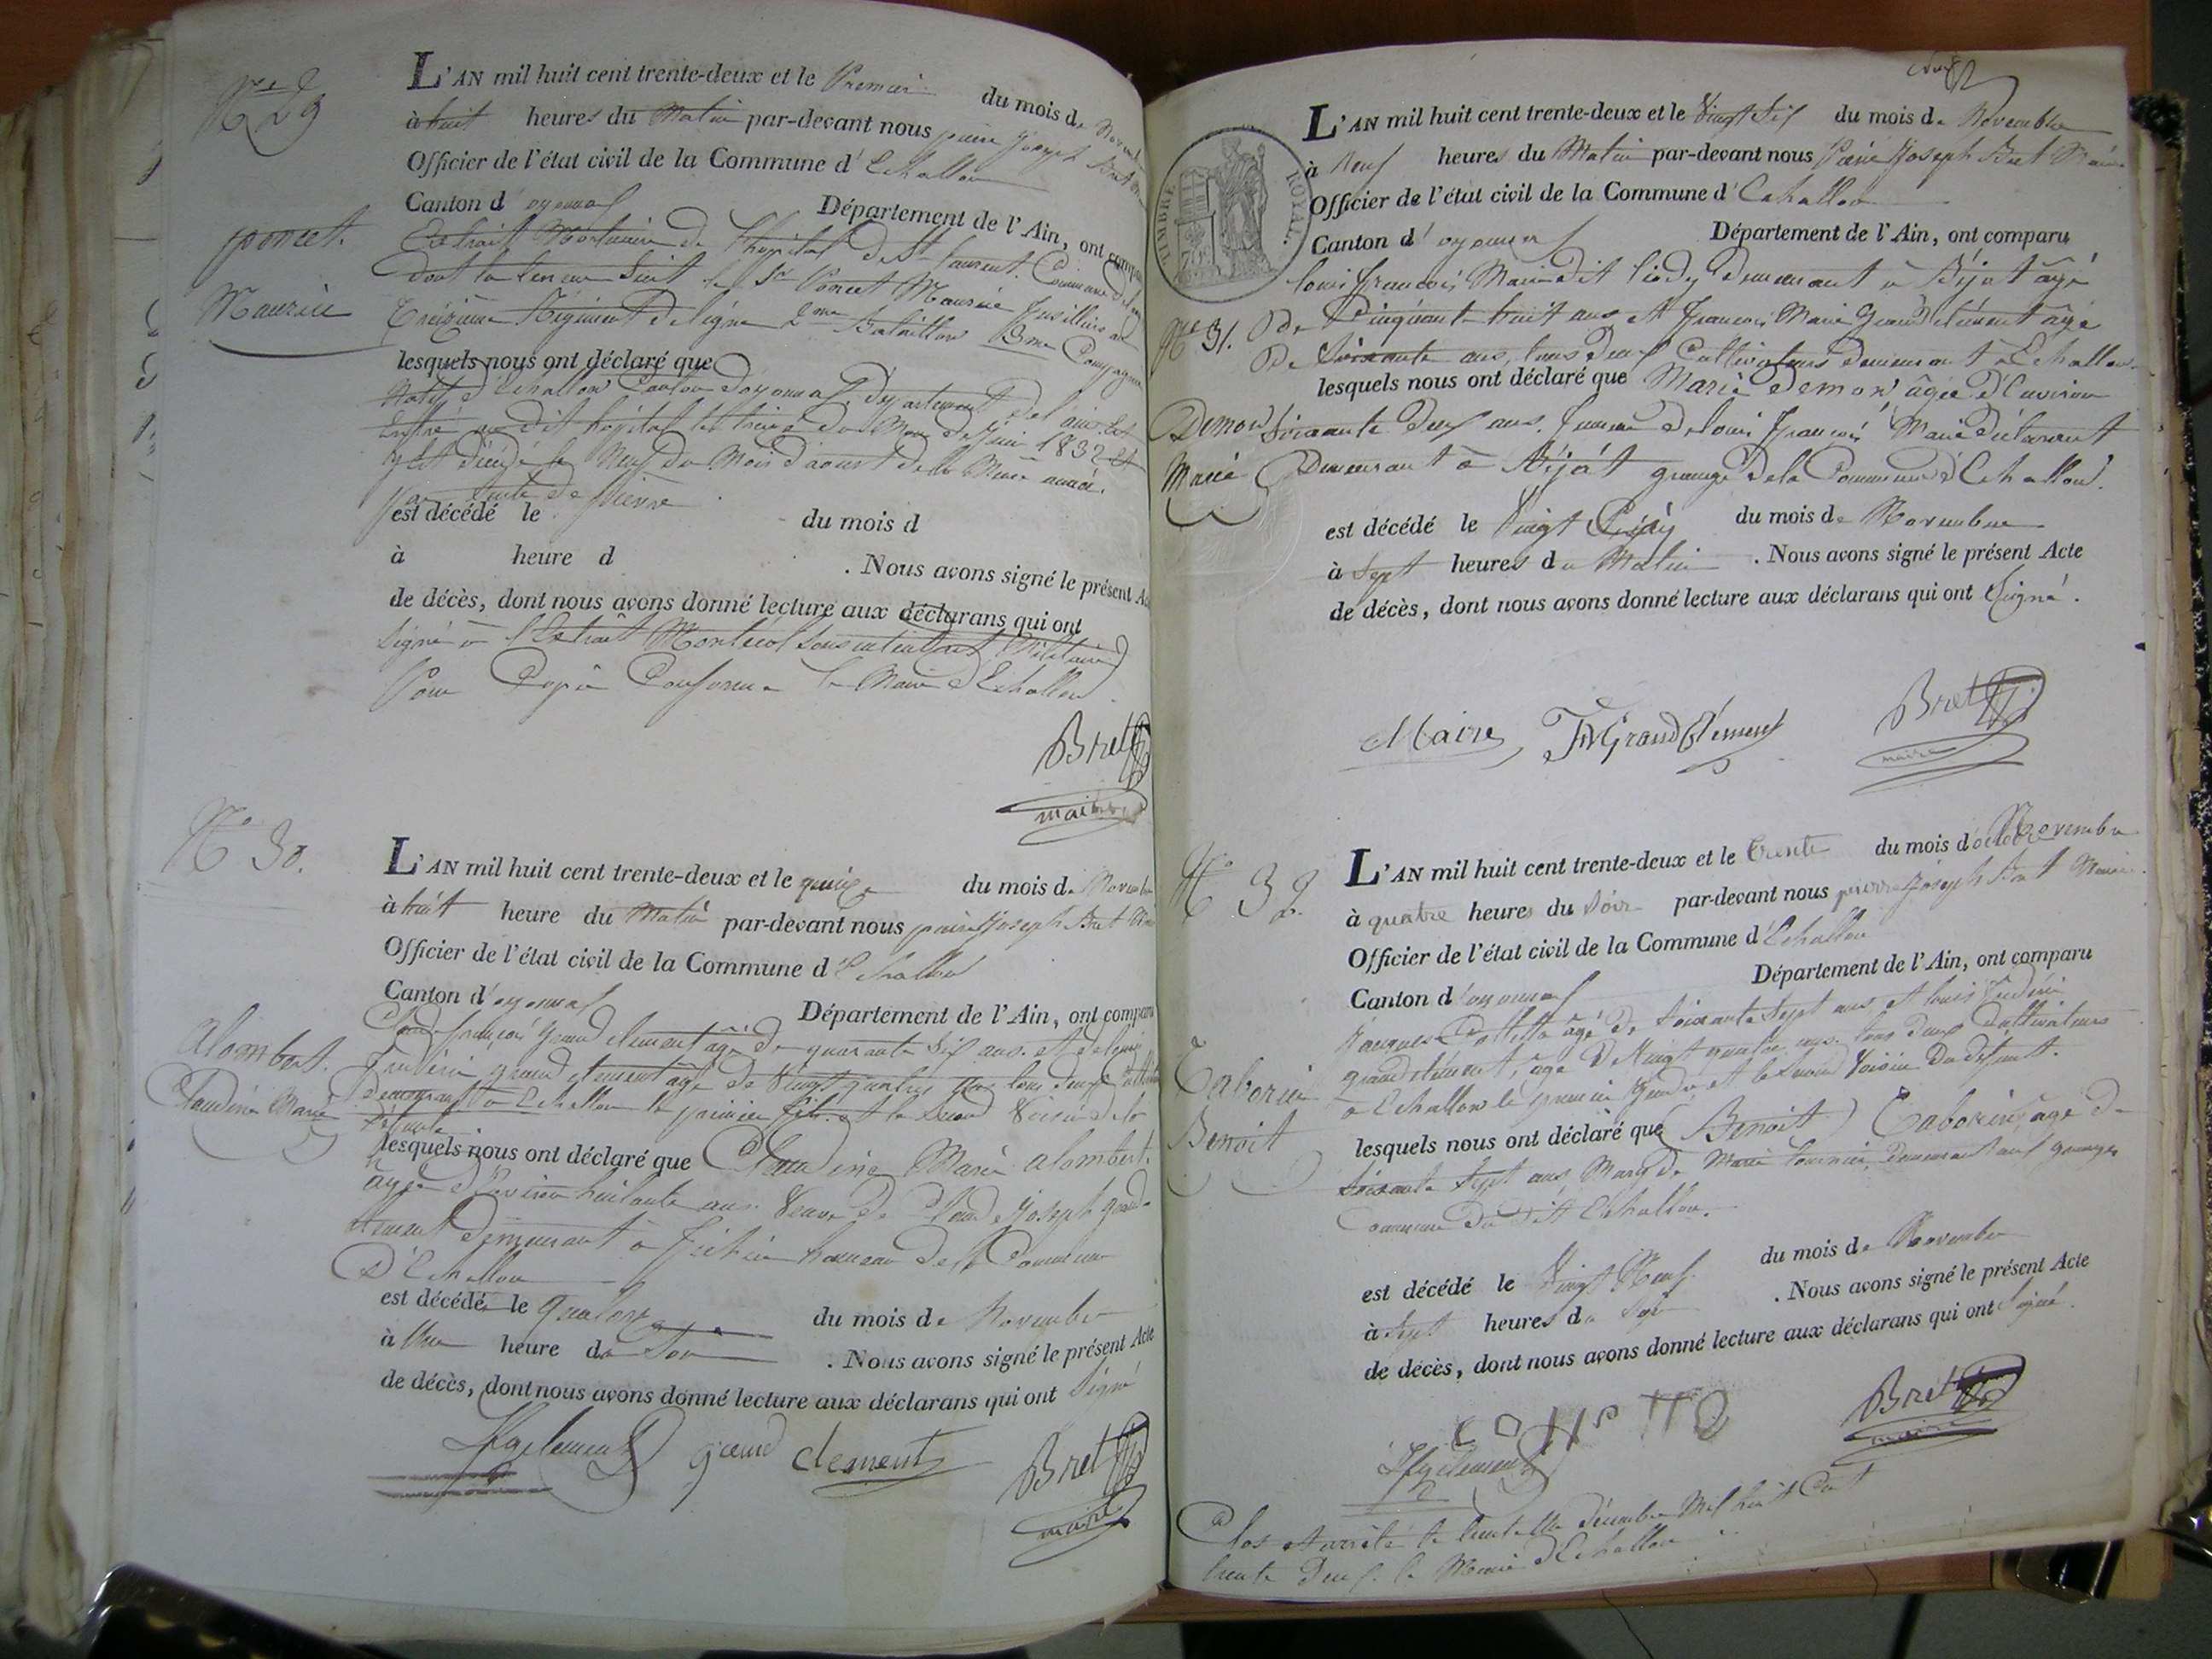 N.e 29
poncet.
Maurice
L'AN mil huit cent trente-deux et le Premier du mois de Novembre
à huit heures du Matin par-devant nous pierre Joseph Bret
Officier de l'état civil de la Commune d'Echallon
Canton d'oyonnax Département de l'Ain, ont comparu
Extrait Mortuaire de l'hôpital de St Laurent. Commune
dont la teneur suit le Sr Poncet Maurice fusillier au
Treizième Régiment de ligne 2me Bataillon 3me Compagnie
lesquels nous ont déclaré que
Natif d'Echallon Canton d'oyonnax, Département de l'ain est
Entré au dit hôpital le treize du Mois de Juin 1832 et
y est décédé le Neuf du Mois d'aoust de la Même année.
par suite de fièvre
est décédé le du mois d
à heure d . Nous avons signé le présent Acte
de décès, dont nous avons donné lecture aux déclarans qui ont
signé à l'Extrait
Pour Copie Conforme le Maire d'Echallon
Bret
maire
N.o 30.
alombert.
Claudine Marie
L'AN mil huit cent trente-deux et le quinze du mois de Novembre
à huit heure du Matin par-devant nous pierre Joseph Bret
Officier de l'état civil de la Commune d'Echallon
Canton d'oyonnax Département de l'Ain, ont comparu
Claude françois Grand clement âgé de quarante six ans. et de louis
grand clement âgé de Vingt quatre ans tous deux
demeurant à Echallon le premier fils et le second Voisin de la
défunte
lesquels nous ont déclaré que Claudine Marie alombert.
âgée d'Environ huitante ans Veuve de Claude Joseph grand
clement demeurant à hameau de la Commune
D'Echallon
est décédée le quatorze du mois de Novembre
à Une heure du Soir . Nous avons signé le présent Acte
de décès, dont nous avons donné lecture aux déclarans qui ont Signé
grand clement
Bret
maire
TIMBRE ROYAL.
N.e 31.
Demon
Marie
L'AN mil huit cent trente-deux et le Vingt Six du mois de Novembre
à Neuf heures du Matin par-devant nous Pierre Joseph Bret Maire
Officier de l'état civil de la Commune d'Echallon
Canton d'oyonnax Département de l'Ain, ont comparu
louis françois Maire dit demeurant à Bijat âgé
De Cinquante huit ans et françois Marie Grand clément âgé
De Soixante ans, tous deux Cultivateurs demeurant à Echallon
lesquels nous ont déclaré que Marie Demon âgée d'Environ
Soixante Deux ans. femme de louis françois Maire
Demeurant à Bijat grange de la Commune d'Echallon.
est décédé le Vingt Cinq du mois de Novembre
à Sept heures du Matin . Nous avons signé le présent Acte
de décès, dont nous avons donné lecture aux déclarans qui ont Signé.
Maire FM Grand Clément
Bret
maire
N.o 32.
Taborin
Benoit
L'AN mil huit cent trente-deux et le trente du mois d octobre Novembre
à quatre heures du Soir par-devant nous pierre Joseph Bret Maire
Officier de l'état civil de la Commune d'Echallon
Canton d'oyonnax Département de l'Ain, ont comparu
Jacques Colletta âgé de Soixante Sept ans et louis
grand clément, âgé de Vingt quatre ans. tous deux Cultivateurs
à Echallon le premier et le Second Voisin du défunt.
lesquels nous ont déclaré que (Benoit) Taborin, âgé de
Soixante Sept ans, Mary de Marie tournier, demeurant aux granges
Commune du dit Echallon.
est décédé le Vingt Neuf du mois de Novembre
à Sept heures du Soir . Nous avons signé le présent Acte
de décès, dont nous avons donné lecture aux déclarans qui ont Signé.
Bret
maire
Clos et arrêté le trente Un décembre Mil huit Cent
trente Deux. le Maire d'Echallon